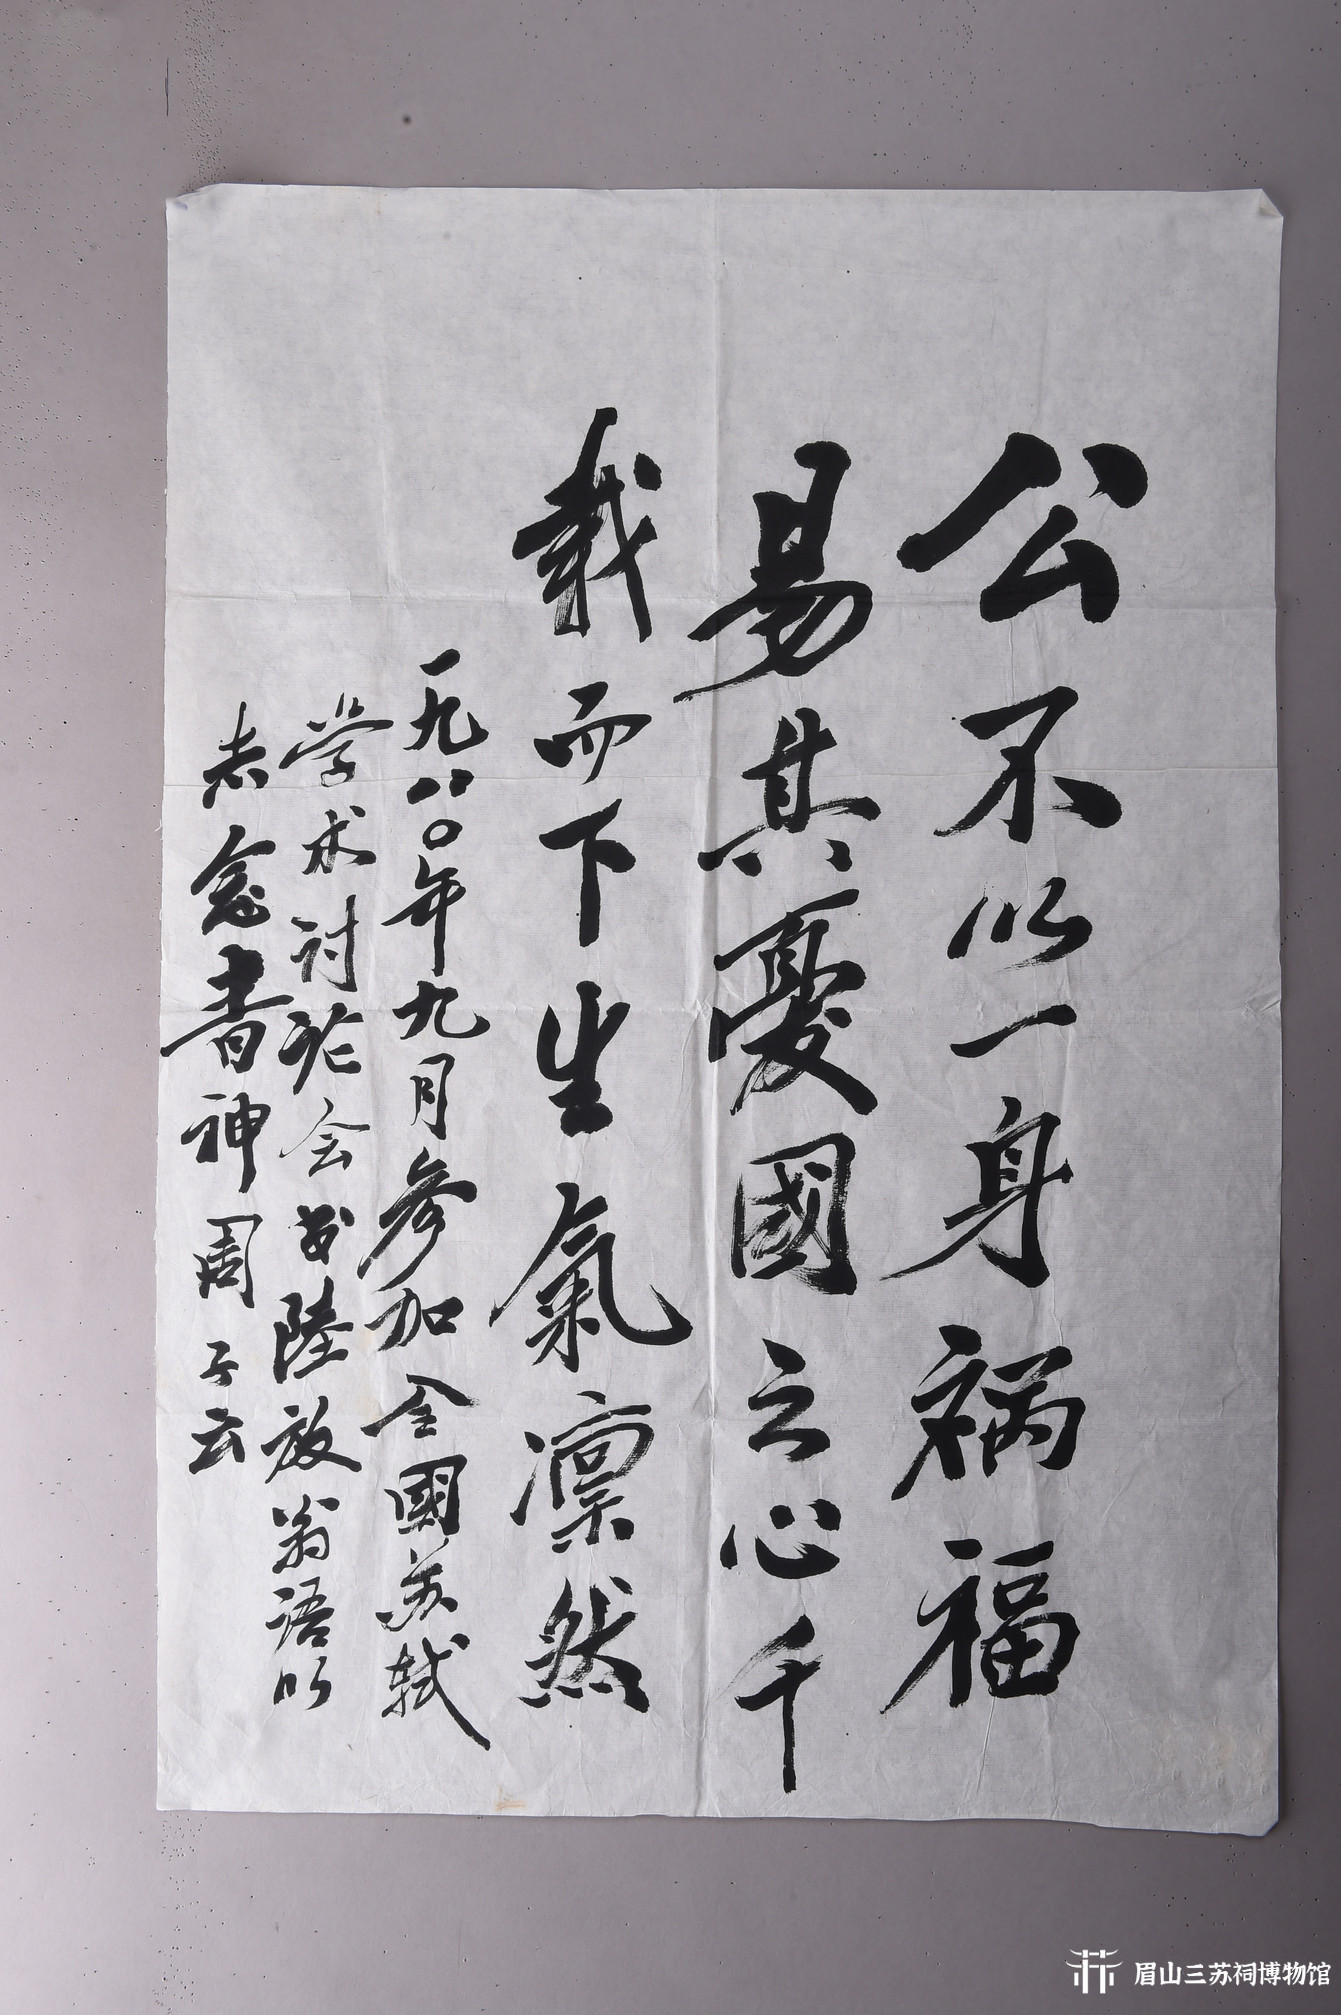 公不以一身祸福
易其憂國之心千
载而下生氣凛然
一九八〇年九月参加全國苏轼
学术讨论会书陸放翁语以
志念青神周子云
眉山三苏祠博物馆